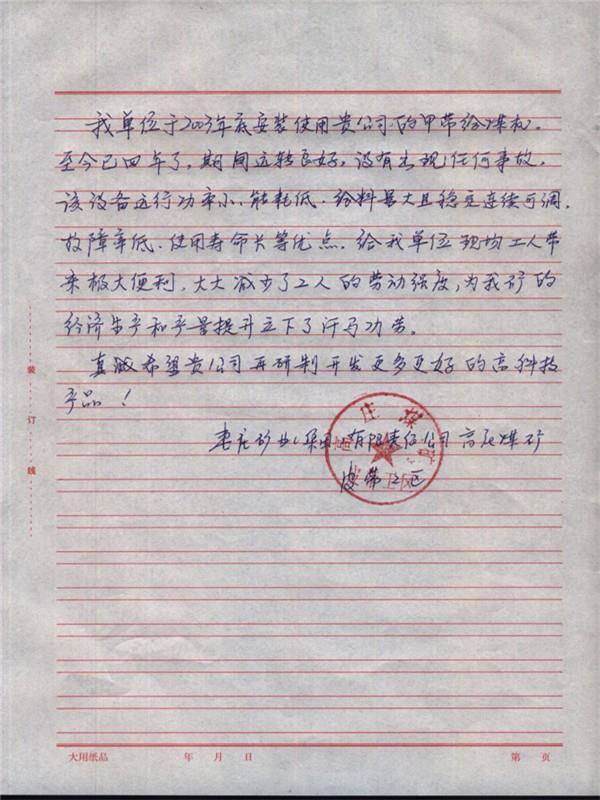 我单位于2003年底安装使用贵公司的甲带给煤机。
至今已四年了，期间运转良好，没有出现任何事故，
该设备运行功率小、能耗低、给料量大且稳定连续可调，
故障率低、使用寿命长等优点，给我单位现场工人带
来极大便利，大大减少了工人的劳动强度，为我矿的
经济生产和产量提升立下了汗马功劳。
真诚希望贵公司再研制开发更多更好的高科技
产品！
枣庄矿业集团有限责任公司高庄煤矿
皮带工区
庄煤矿
工区
装订线
大用纸品 年 月 日 第 页